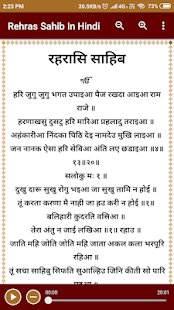 2:25 PM
30.5KB/s
Rehras Sahib In Hindi
रहरासि साहिब
हरि जुगु जुगु भगत उपाइआ पैज रखदा आइआ राम
राजे ॥
हरणाखसु दुसटु हरि मारिआ प्रहलादु तराइआ ॥
अहंकारीआ निंदका पिठि देइ नामदेउ मुखि लाइआ ॥
जन नानक ऐसा हरि सेविआ अंति लए छडाइआ ॥४॥
१३॥२०॥
सलोकु मः १ ॥
दुखु दारू सुखु रोगु भइआ जा सुखु तामि न होई ॥
तूं करता करणा मै नाही जा हउ करी न होई ॥१॥
बलिहारी कुदरति वसिआ ॥
तेरा अंतु न जाई लखिआ ॥१॥ रहाउ ॥
जाति महि जोति जोति महि जाता अकल कला भरपूरि
रहिआ ॥
तूं सचा साहिबु सिफति सुआल्हिउ जिनि कीती सो पारि
00:00
20:01